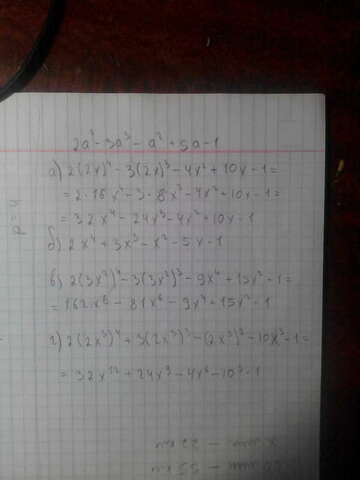 2a⁴-3a³-a²+5a-1
а) 2(2x)⁴-3(2x)³-4x²+10x-1=
=2·16x⁴-3·8x³-4x²+10x-1=
=32x⁴-24x³-4x²+10x-1
б) 2x⁴+3x³-x²-5x-1
в) 2(3x²)⁴-3(3x²)³-9x⁴+15x²-1=
=162x⁸-81x⁶-9x⁴+15x²-1
г) 2(2x³)⁴+3(2x³)³-(2x³)²-10x³-1=
=32x¹²+24x⁹-4x⁶-10³-1